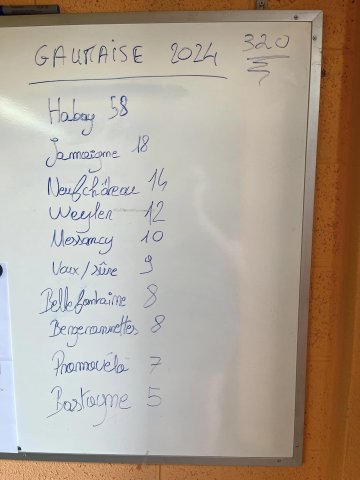 GAUMAISE 2024 320
Habay 58
Jamoigne 18
Neufchâteau 14
Weyler 12
Messancy 10
Vaux/sûre 9
Bellefontaine 8
Bergeronnettes 8
Promovélo 7
Bastogne 5